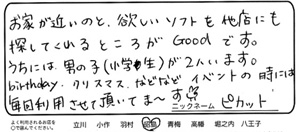 お家が近いのと、欲しいソフトも他店にも
探してくれるところがGoodです。
うちには男の子(小学生)が2人います。
birthday、クリスマスなどなどイベントの時には
毎回利用させて頂いてまーす
ニックネーム ピカット
よく利用されるお店を
○で囲んでください。
立川 小作 羽村 昭島 青梅 高幡 堀之内 八王子